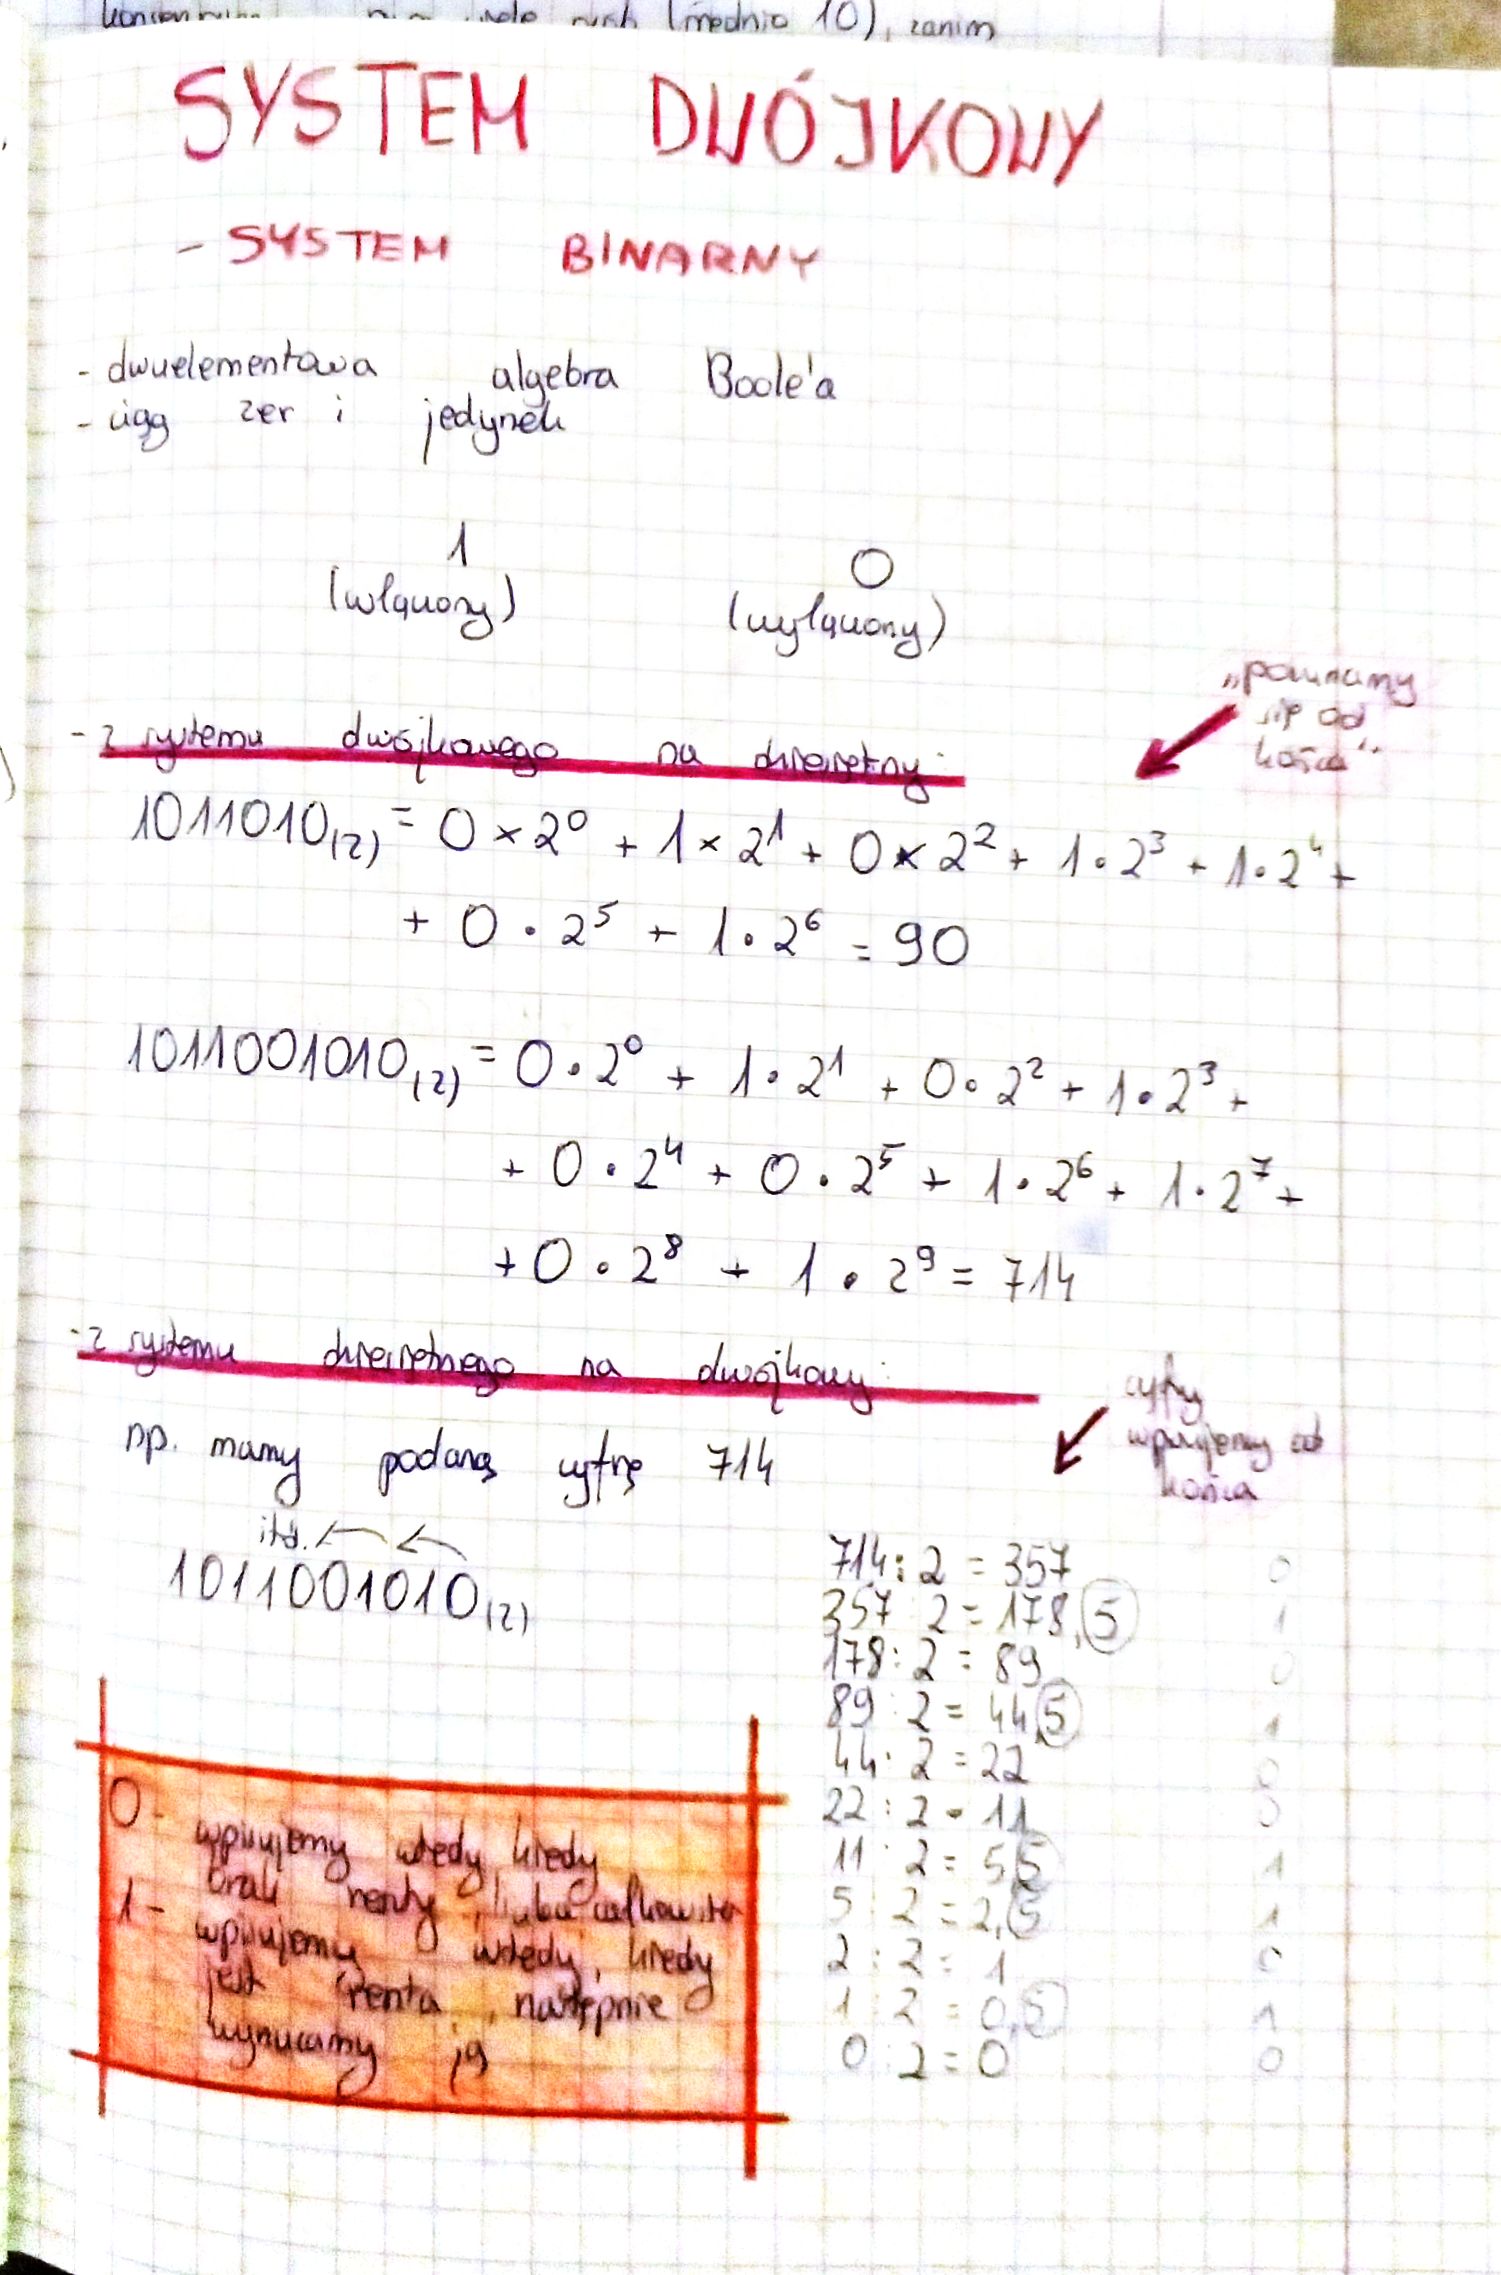 (średnio 10), zanim
SYSTEM DWÓJKOWY
- SYSTEM BINARNY
- dwuelementowa algebra Boole'a
- ciąg zer i jedynek
1 0
(włączony) (wyłączony)
"poruszamy
się od
końca"
- z systemu dwójkowego na dziesiętny:
1011010(2) = 0 × 2⁰ + 1 × 2¹ + 0 × 2² + 1 · 2³ + 1 · 2⁴ +
+ 0 · 2⁵ + 1 · 2⁶ = 90
1011001010(2) = 0 · 2⁰ + 1 · 2¹ + 0 · 2² + 1 · 2³ +
+ 0 · 2⁴ + 0 · 2⁵ + 1 · 2⁶ + 1 · 2⁷ +
+ 0 · 2⁸ + 1 · 2⁹ = 714
- z systemu dziesiętnego na dwójkowy:
cyfry
wpisujemy od
końca
np. mamy podaną cyfrę 714
itd.
1011001010(2)
714 : 2 = 357 0
357 : 2 = 178,5 1
178 : 2 = 89 0
89 : 2 = 44,5 1
44 : 2 = 22 0
22 : 2 = 11 0
11 : 2 = 5,5 1
5 : 2 = 2,5 1
2 : 2 = 1 0
1 : 2 = 0,5 1
0 : 2 = 0 0
0 - wpisujemy wtedy, kiedy
brak reszty, liczba całkowita
1 - wpisujemy wtedy, kiedy
jest reszta, następnie
wyrzucamy ją